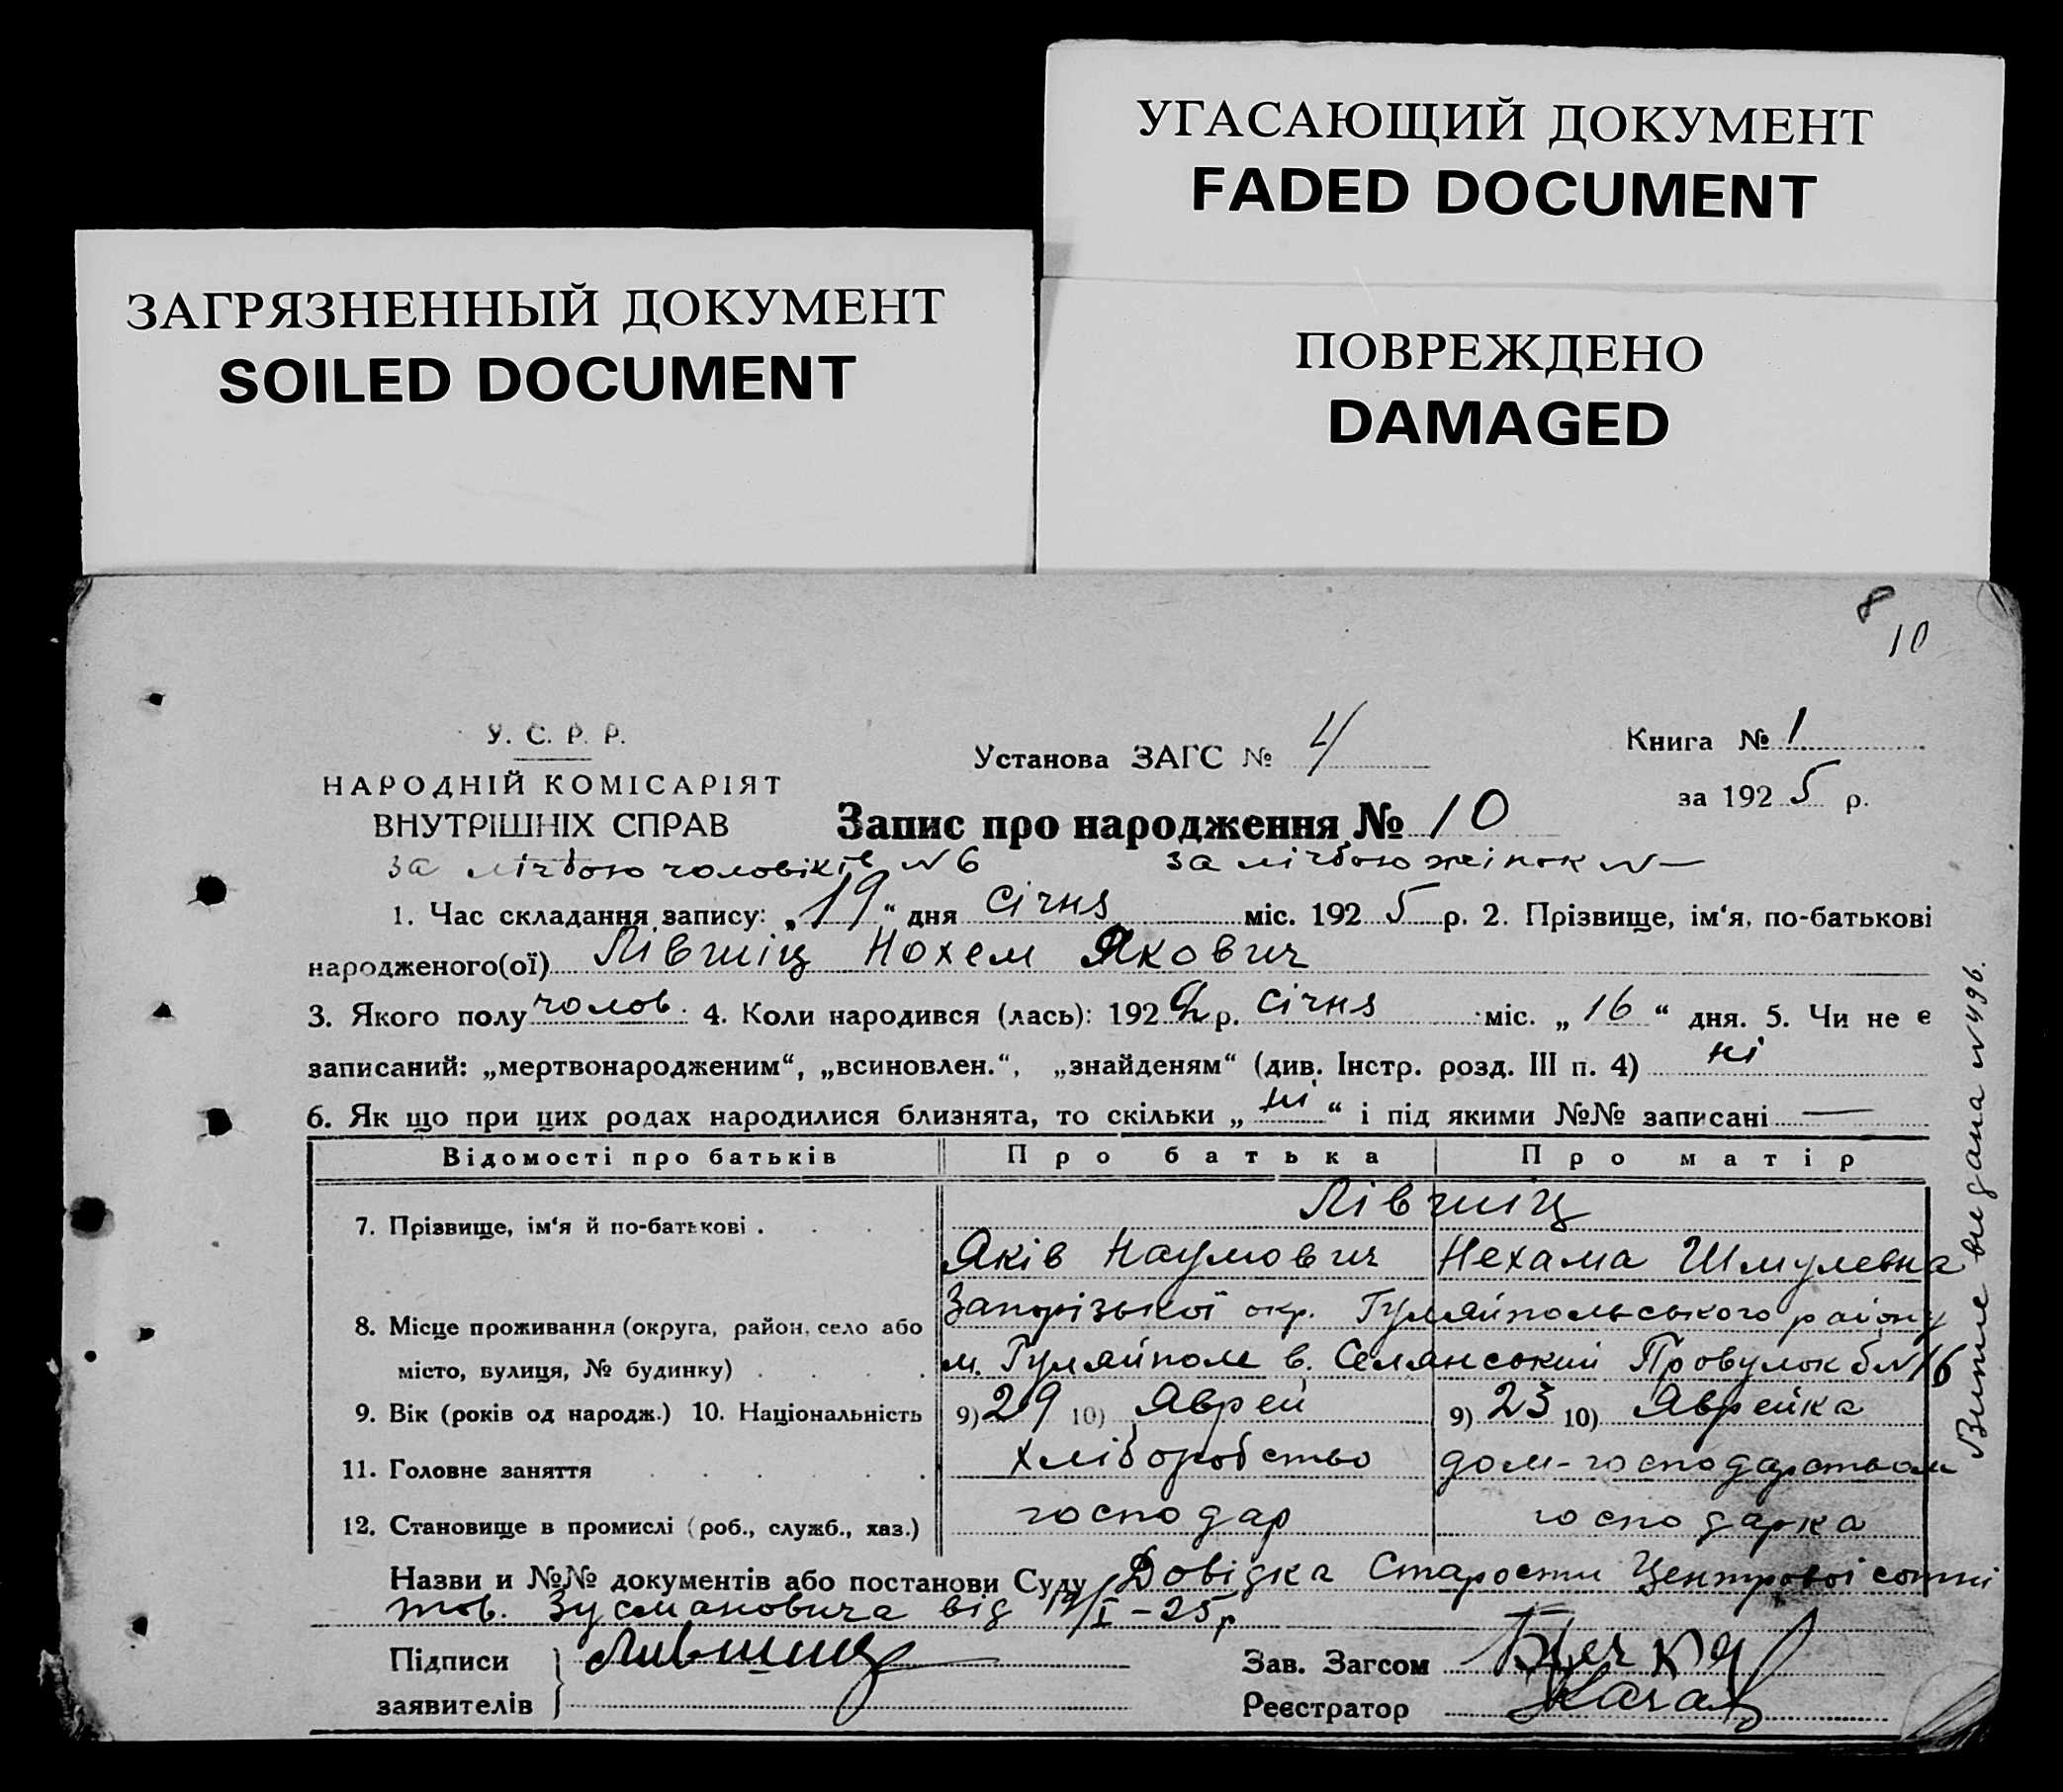 УГАСАЮЩИЙ ДОКУМЕНТ
FADED DOCUMENT
ЗАГРЯЗНЕННЫЙ ДОКУМЕНТ
SOILED DOCUMENT
ПОВРЕЖДЕНО
DAMAGED
8
10
У. С. Р. Р.
НАРОДНІЙ КОМІСАРІЯТ
ВНУТРІШНІХ СПРАВ
Установа ЗАГС № 4
Книга № 1
за 1925 р.
Запис про народження № 10
за лічбою чоловіків N 6 за лічбою жінок N —
1. Час складання запису: „19“ дня січня міс. 1925 р. 2. Прізвище, ім‘я, по-батькові
народженого(ої) Лівшіц Нохем Якович
3. Якого полу чолов. 4. Коли народився (лась): 192 р. січня міс. „16“ дня. 5. Чи не є
записаний: „мертвонародженим“, „всиновлен.“, „знайденям“ (див. Інстр. розд. III п. 4) ні
6. Як що при цих родах народилися близнята, то скільки „ні“ і під якими №№ записані —
Відомості про батьків Про батька Про матір
7. Прізвище, ім‘я й по-батькові . Лівшіц
Яків Наумович Нехама Шмулевна
8. Місце проживання (округа, район, село або Запорізької окр. Гуляйпольського району
місто, вулиця, № будинку) м. Гуляйполе в. Селянський Провулок б N 16
9. Вік (років од народж.) 10. Національність 9) 29 10) Яврей 9) 23 10) Яврейка
11. Головне заняття хліборобство дом-господарством
12. Становище в промислі (роб., служб., хаз.) господар господарка
Назви и №№ документів або постанови Суду Довідка Старости Центрової сотні
тов. Зусмановича від 19/I–25 р
Підписи Лившиц Зав. Загсом
заявителів Реєстратор
Витяг видана N 496.